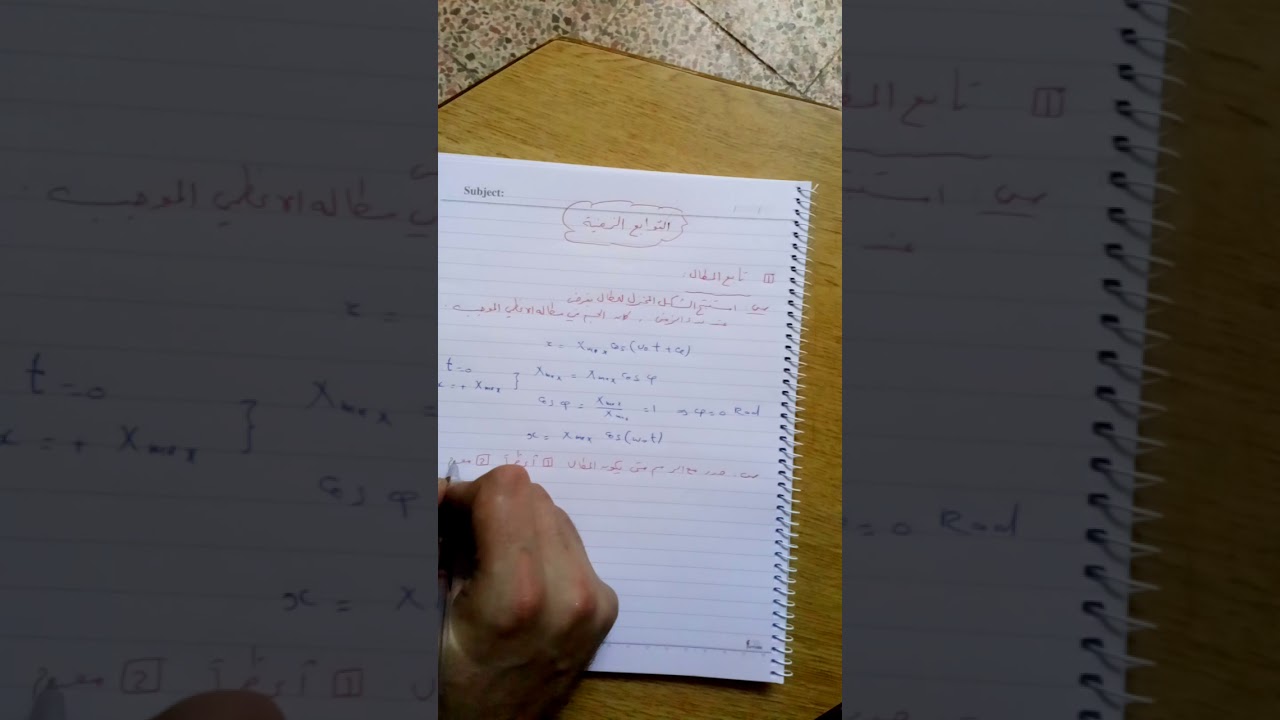 Subject:
التوابع الزمنية
1 تابع المطال:
س: استنتج الشكل المختزل للمطال بفرض
مبدأ الزمن، كان الجسم في مطاله الاعظمي الموجب.
x = Xmax cos(ω₀t+φ)
t=0
x=+Xmax } Xmax = Xmax cos φ
cos φ = Xmax/Xmax =1 φ=0 Rad
x = Xmax cos(ω₀t)
س: حدد مع الرسم متى يكون المطال 1 أعظمياً 2